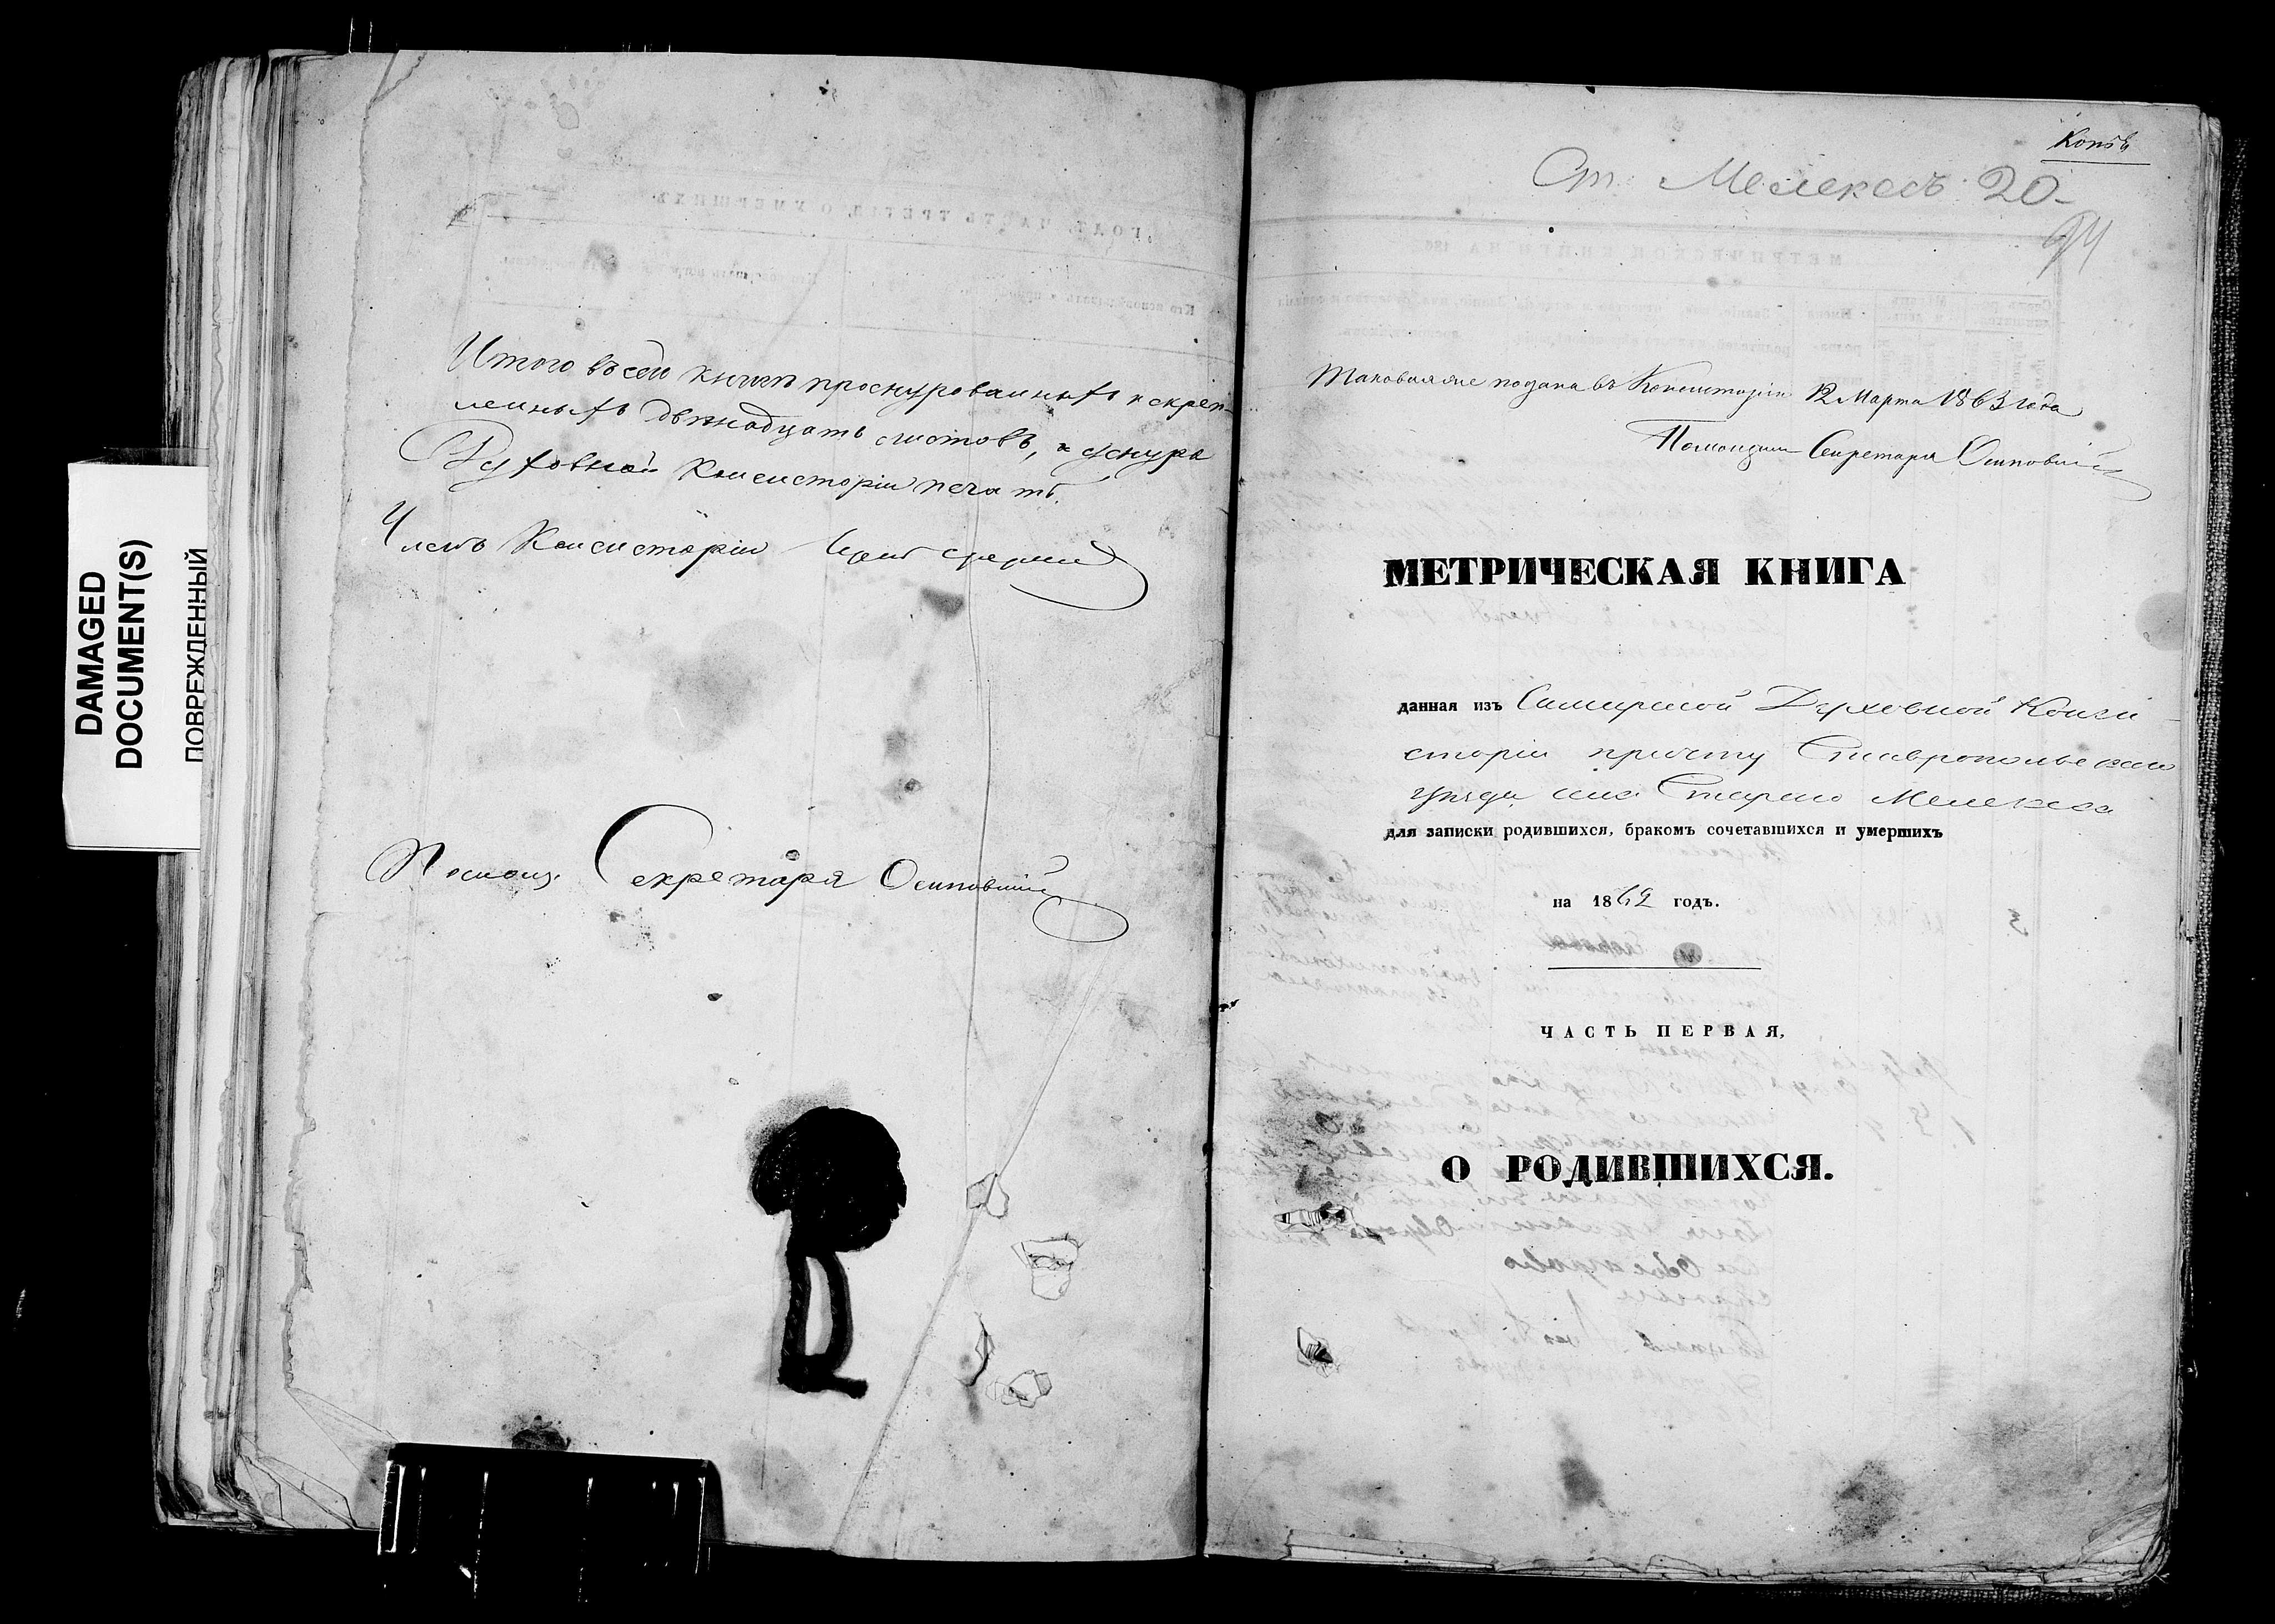 DAMAGED
DOCUMENT(S)
ПОВРЕЖДЕННЫЙ
Итого въ сей книгѣ прошнурованныхъ и скреп-
ленныхъ двѣнадцать листовъ, у шнура
Духовной Консисторіи печать.
Членъ Консисторіи
Помощ. Секретаря Осиповскій
Копія
Ст. Мелекесъ 20
94
Таковая же подана въ Консисторію 12 Марта 1863 года
Помощникъ Секретаря Осиповскій
МЕТРИЧЕСКАЯ КНИГА
данная изъ Самарской Духовной Конси-
сторіи причту Ставропольскаго
уѣзда села Стараго Мелекеса
для записки родившихся, бракомъ сочетавшихся и умершихъ
на 1862 годъ.
ЧАСТЬ ПЕРВАЯ,
О РОДИВШИХСЯ.